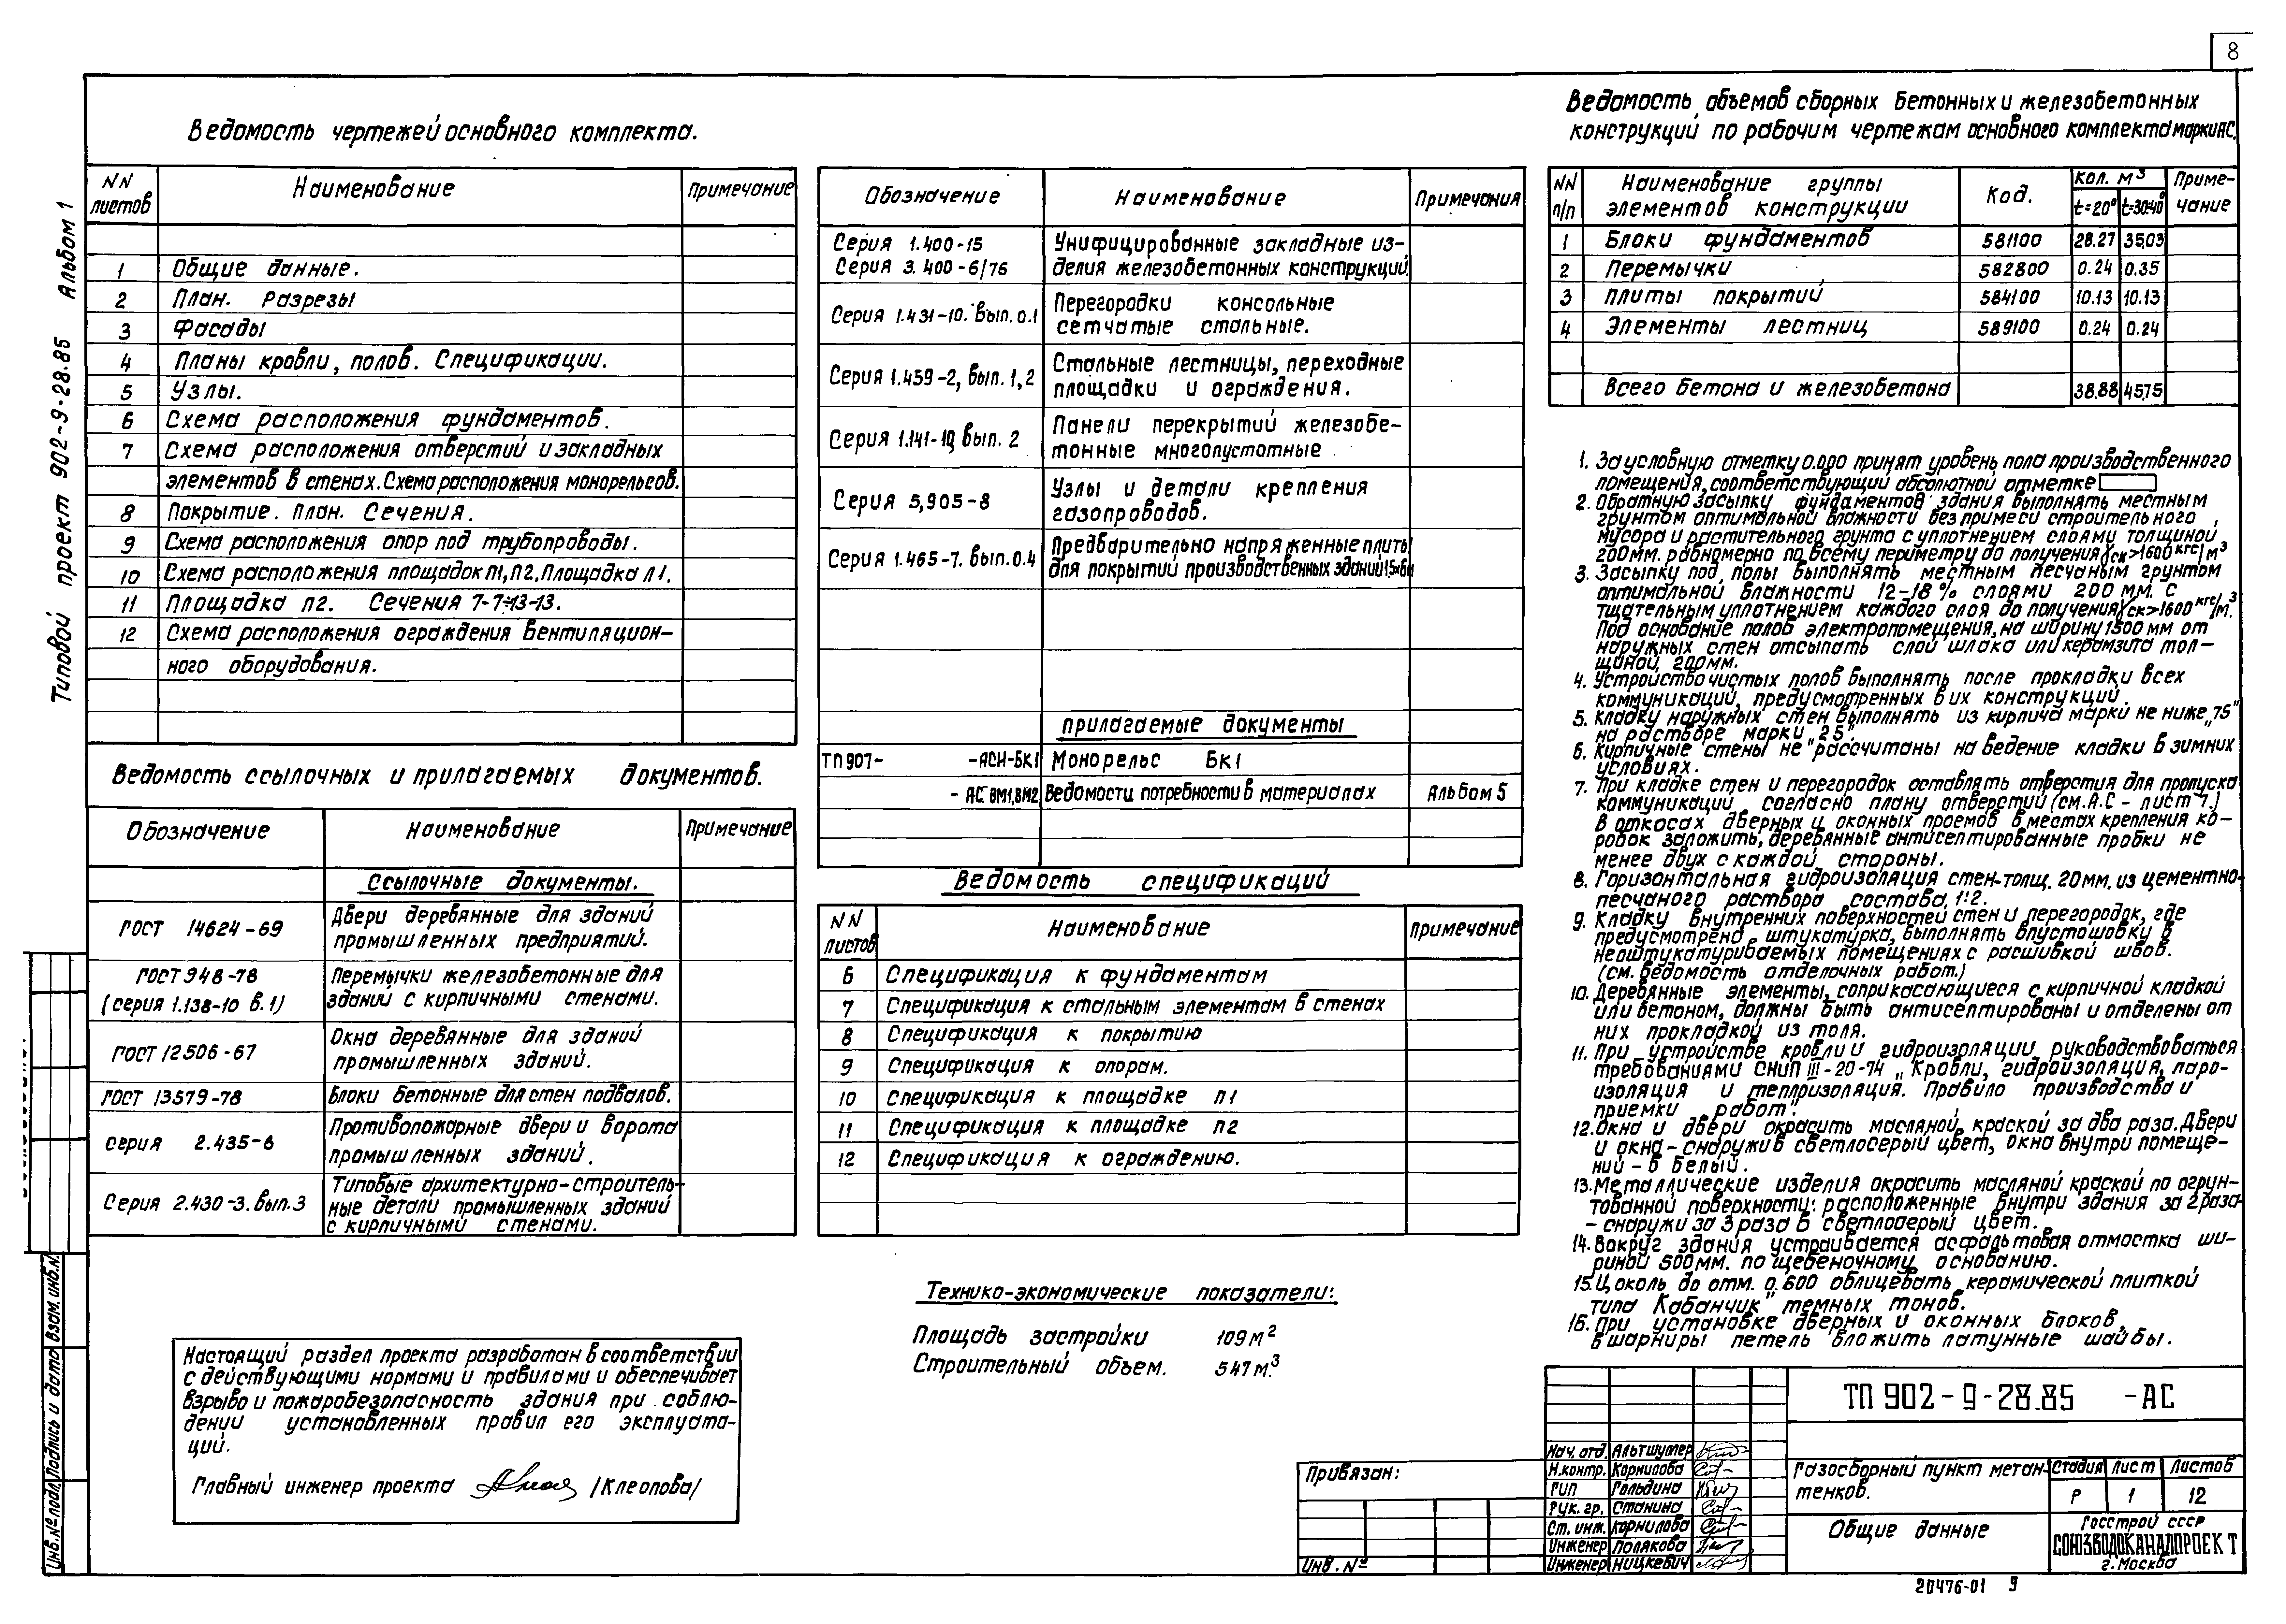 8
Типовой проект 902-9-28.85 Альбом 1
Ведомость чертежей основного комплекта.
NN листов | Наименование | Примечание
1 Общие данные.
2 План. Разрезы
3 Фасады
4 Планы кровли, полов. Спецификации.
5 Узлы.
6 Схема расположения фундаментов.
7 Схема расположения отверстий и закладных
элементов в стенах. Схема расположения монорельсов.
8 Покрытие. План. Сечения.
9 Схема расположения опор под трубопроводы.
10 Схема расположения площадок П1, П2. Площадка Л1.
11 Площадка П2. Сечения 7-7÷13-13.
12 Схема расположения ограждения вентиляцион-
ного оборудования.
Ведомость ссылочных и прилагаемых документов.
Обозначение | Наименование | Примечание
Ссылочные документы.
ГОСТ 14624-69 Двери деревянные для зданий
промышленных предприятий.
ГОСТ 948-78 Перемычки железобетонные для
(серия 1.138-10 в.1) зданий с кирпичными стенами.
ГОСТ 12506-67 Окна деревянные для зданий
промышленных зданий.
ГОСТ 13579-78 Блоки бетонные для стен подвалов.
серия 2.435-6 Противопожарные двери и ворота
промышленных зданий.
Серия 2.430-3. вып.3 Типовые архитектурно-строитель-
ные детали промышленных зданий
с кирпичными стенами.
Настоящий раздел проекта разработан в соответствии
с действующими нормами и правилами и обеспечивает
взрыво и пожаробезопасность здания при соблю-
дении установленных правил его эксплуата-
ций.
Главный инженер проекта /Клеопова/
Обозначение | Наименование | Примечания
Серия 1.400-15 Унифицированные закладные из-
Серия 3.400-6/76 делия железобетонных конструкций.
Серия 1.431-10. вып. 0.1 Перегородки консольные
сетчатые стальные.
Серия 1.459-2, вып. 1,2 Стальные лестницы, переходные
площадки и ограждения.
Серия 1.141-10, вып. 2 Панели перекрытий железобе-
тонные многопустотные
Серия 5,905-8 Узлы и детали крепления
газопроводов.
Серия 1.465-7. вып.0.4 Предварительно напряженные плиты
для покрытий производственных зданий 1.5х6м
прилагаемые документы
ТП907- -АСИ-БК1 Монорельс БК1
- АС ВМ1,ВМ2 Ведомости потребности в материалах Альбом 5
Ведомость спецификаций
NN листов | Наименование | Примечание
6 Спецификация к фундаментам
7 Спецификация к стальным элементам в стенах
8 Спецификация к покрытию
9 Спецификация к опорам.
10 Спецификация к площадке П1
11 Спецификация к площадке П2
12 Спецификация к ограждению.
Технико-экономические показатели:
Площадь застройки 109 м²
Строительный объем. 547 м³.
Ведомость объемов сборных бетонных и железобетонных
конструкций по рабочим чертежам основного комплекта марки АС.
NN п/п | Наименование группы элементов конструкции | Код. | Кол. м³ t=20° t=30:40° | Приме-чание
1 Блоки фундаментов 581100 28.27 35,03
2 Перемычки 582800 0.24 0.35
3 Плиты покрытий 584100 10.13 10.13
4 Элементы лестниц 589100 0.24 0.24
Всего бетона и железобетона 38.88 45,75
1. За условную отметку 0.000 принят уровень пола производственного
помещения, соответствующий абсолютной отметке
2. Обратную засыпку фундаментов здания выполнять местным
грунтом оптимальной влажности без примеси строительного,
мусора и растительного грунта с уплотнением слоями толщиной
200мм. равномерно по всему периметру до получения γск>1600 кгс/м³
3. Засыпку под полы выполнять местным песчаным грунтом
оптимальной влажности 12-18% слоями 200 мм. с
тщательным уплотнением каждого слоя до получения γск>1600 кгс/м.³
Под основание полов электропомещения, на ширину 1500 мм от
наружных стен отсыпать слой шлака или керамзита тол-
щиной 200мм.
4. Устройство чистых полов выполнять после прокладки всех
коммуникаций, предусмотренных в их конструкций.
5. Кладку наружных стен выполнять из кирпича марки не ниже „75"
на растворе марки „25".
6. Кирпичные стены не рассчитаны на ведение кладки в зимних
условиях.
7. При кладке стен и перегородок оставлять отверстия для пропуска
коммуникаций согласно плану отверстий (см. А.С - лист 7.)
В откосах дверных и оконных проемов в местах крепления ко-
робок заложить, деревянные антисептированные пробки не
менее двух с каждой стороны.
8. Горизонтальная гидроизоляция стен-толщ. 20мм. из цементно-
песчаного раствора состава 1:2.
9. Кладку внутренних поверхностей стен и перегородок, где
предусмотрена штукатурка, выполнять впустошовку в
неоштукатуриваемых помещениях с расшивкой швов.
(см. ведомость отделочных работ.)
10. Деревянные элементы, соприкасающиеся с кирпичной кладкой
или бетоном, должны быть антисептированы и отделены от
них прокладкой из толя.
11. При устройстве кровли и гидроизоляции руководствоваться
требованиями СНиП III-20-74 „Кровли, гидроизоляция, паро-
изоляция и теплоизоляция. Правило производства и
приемки работ".
12. Окна и двери окрасить масляной краской за два раза. Двери
и окна-снаружи в светлосерый цвет, окна внутри помеще-
ний - в белый.
13. Металлические изделия окрасить масляной краской по огрун-
тованной поверхности: расположенные внутри здания за 2 раза-
- снаружи за 3 раза в светлосерый цвет.
14. Вокруг здания устраивается асфальтовая отмостка ши-
риной 500мм. по щебеночному основанию.
15. Цоколь до отм. 0.600 облицевать керамической плиткой
типа Кабанчик" темных тонов.
16. При установке дверных и оконных блоков,
в шарниры петель вложить латунные шайбы.
ТП 902-9-28.85 -АС
Нач. отд. Альтшулер
Н.контр. Корнилова
ГИП Гольдина
Рук. гр. Станина
Ст. инж. Корнилова
Инженер Полякова
Инженер Ницкевич
Газосборный пункт метан-
тенков.
Стадия Лист Листов
Р 1 12
Общие данные
Госстрой СССР
СОЮЗВОДОКАНАЛПРОЕКТ
г. Москва
Привязан:
Инв. №
Инв.№ подл. Подпись и дата Взам. инв.н.
20476-01 9